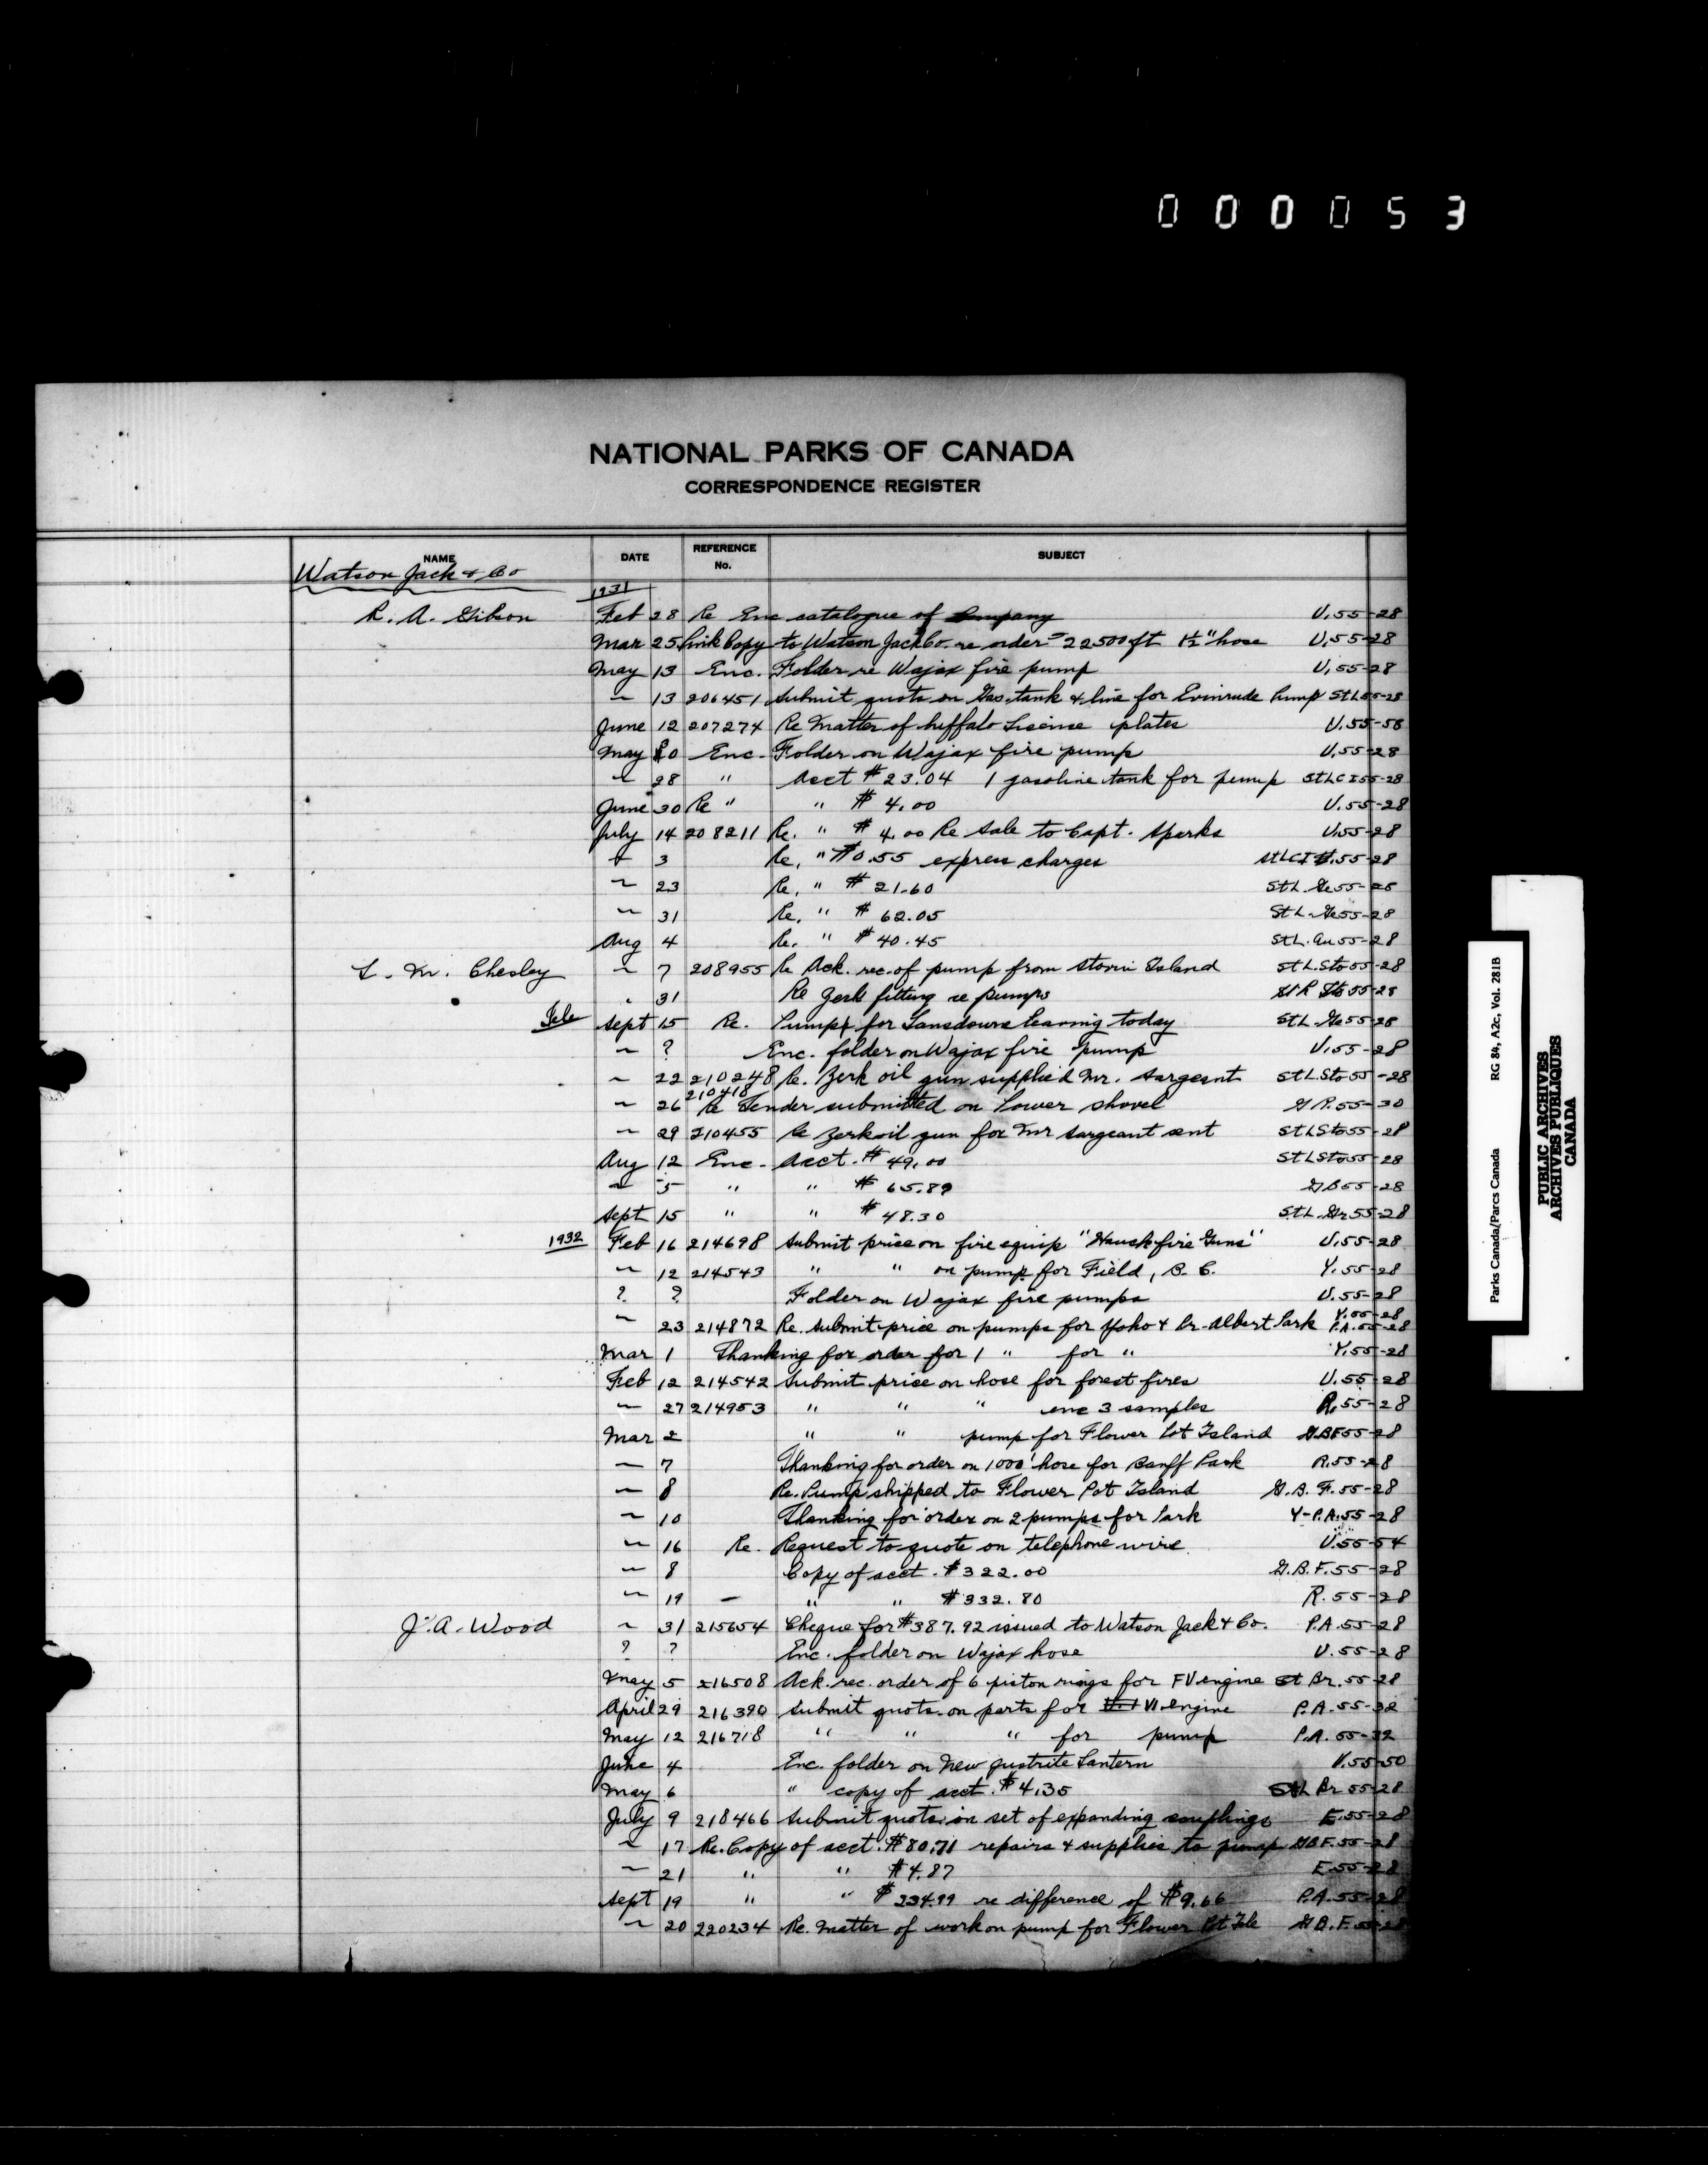 000053
NATIONAL PARKS OF CANADA
CORRESPONDENCE REGISTER
NAME DATE REFERENCE No. SUBJECT
Watson Jack & Co
1931
R. A. Gibson Feb 28 Re Enc catalogue of Company U.55-28
Mar 25 Pink Copy to Watson Jack Co. re order 22500 ft 1½" hose U.55-28
May 13 Enc. Folder re Wajax fire pump U.55-28
~ 13 206451 Submit quots on Gas. tank & line for Evinrude Pump St L 55-28
June 12 207274 Re Matter of buffalo License plates U.55-58
May 20 Enc- Folder on Wajax fire pump U.55-28
~ 28 " Acct # 23.04 1 gasoline tank for pump StLCI 55-28
June 30 Re " " # 4.00 U.55-28
July 14 208211 Re. " # 4.00 Re Sale to Capt. Sparks U.55-28
3 Re. " #0.55 express charges StLCI 55-28
~ 23 Re. " # 21.60 StL.Ge55-28
~ 31 Re. " # 62.05 StL.Ge55-28
Aug 4 Re. " # 40.45 StL.Au55-28
L. M. Chesley ~ 7 208955 Re Ack. rec. of pump from Stovin Island StL.Sto55-28
31 Re Zerk fitting re pumps Sto55-28
Tele Sept 15 Re. Pumps for Lansdowne leaving today StL.Ge55-28
~ ? Enc. folder on Wajax fire pump U.55-28
~ 22 210248 Re. Zerk oil gun supplied Mr. Sargeant StL.Sto55-28
~ 26 210418 Re Tender submitted on Power shovel G P.55-30
~ 29 210455 Re Zerk oil gun for Mr Sargeant sent StLSto55-28
Aug 12 Enc- Acct. # 49.00 StLSto55-28
~ 5 " " # 65.89 GB55-28
Sept 15 " " # 48.30 StL.Gr55-28
1932 Feb 16 214698 Submit price on fire equip "Hauck fire Guns" U.55-28
~ 12 214543 " " on pump for Field, B. C. Y.55-28
? ? Folder on Wajax fire pumps U.55-28
~ 23 214872 Re. submit price on pumps for Yoho & Pr-Albert Park Y.55-28 P.A.55-28
Mar 1 Thanking for order for 1 " for " Y.55-28
Feb 12 214542 Submit price on hose for forest fires U.55-28
~ 27 214953 " " " enc 3 samples R.55-28
Mar 2 " " pump for Flower Pot Island G.BF55-28
~ 7 Thanking for order on 1000' hose for Banff Park R.55-28
~ 8 Re. Pump shipped to Flower Pot Island G.B.F.55-28
~ 10 Thanking for order on 2 pumps for Park Y-P.A.55-28
~ 16 Re. Request to quote on telephone wire. U.55-54
~ 8 Copy of acct. #322.00 G.B.F.55-28
~ 19 - " " #332.80 R.55-28
J. A. Wood ~ 31 215654 Cheque for #387.92 issued to Watson Jack & Co. P.A.55-28
? ? Enc. folder on Wajax hose U.55-28
May 5 216508 Ack. rec. order of 6 piston rings for FV engine St Br.55-28
April 29 216390 Submit quots. on parts for VI engine P.A.55-32
May 12 216718 " " " for pump P.A.55-32
June 4 Enc. folder on New Justrite Lantern V.55-50
May 6 " copy of acct. #4.35 StL Br 55-28
July 9 218466 Submit quots. on set of expanding couplings E.55-28
~ 17 Re. Copy of acct. #80.71 repairs & supplies to pump GBF.55-28
~ 21 " " #4.87 E.55-28
Sept 19 " " # 234.99 re difference of #9.66 P.A.55-28
~ 20 220234 Re. Matter of work on pump for Flower Pot Isle G B.F.55-28
Parks Canada/Parcs Canada RG 84, A2c, Vol. 281B
PUBLIC ARCHIVES
ARCHIVES PUBLIQUES
CANADA